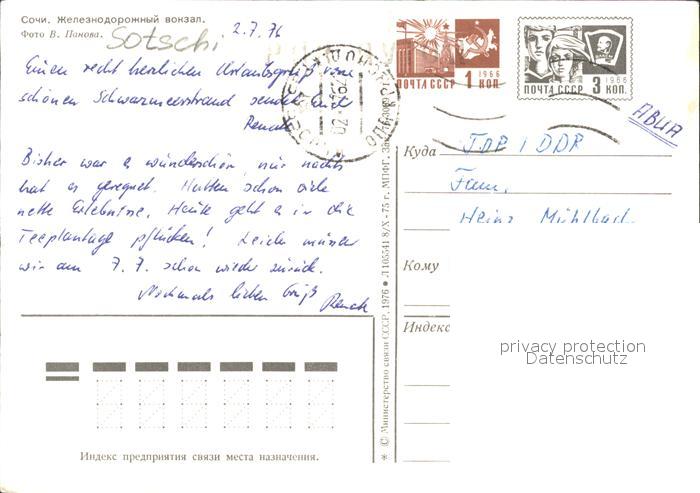 Сочи. Железнодорожный вокзал.
Фото В. Панова.
Sotschi
2.7.76
Einen recht herzlichen Urlaubsgruß vom
schönen Schwarzmeerstrand sendet Euch
Renate
Bisher war es wunderschön, nur nachts
hat es geregnet. Hatten schon viele
nette Erlebnisse. Heute geht es in die
Teeplantage pflücken! Leider müssen
wir am 7.7. schon wieder zurück.
Nochmals lieben Gruß
Renate
ПОЧТА СССР 1 КОП.
1966
ПОЧТА СССР 3 КОП.
1966
АВИА
Куда
ГДР / DDR
Fam.
Heinz Mühlbach
Кому
Индекс
privacy protection
Datenschutz
© Министерство связи СССР, 1976 • Л 105541 8/X - 75 г. МПФГ.
Индекс предприятия связи места назначения.